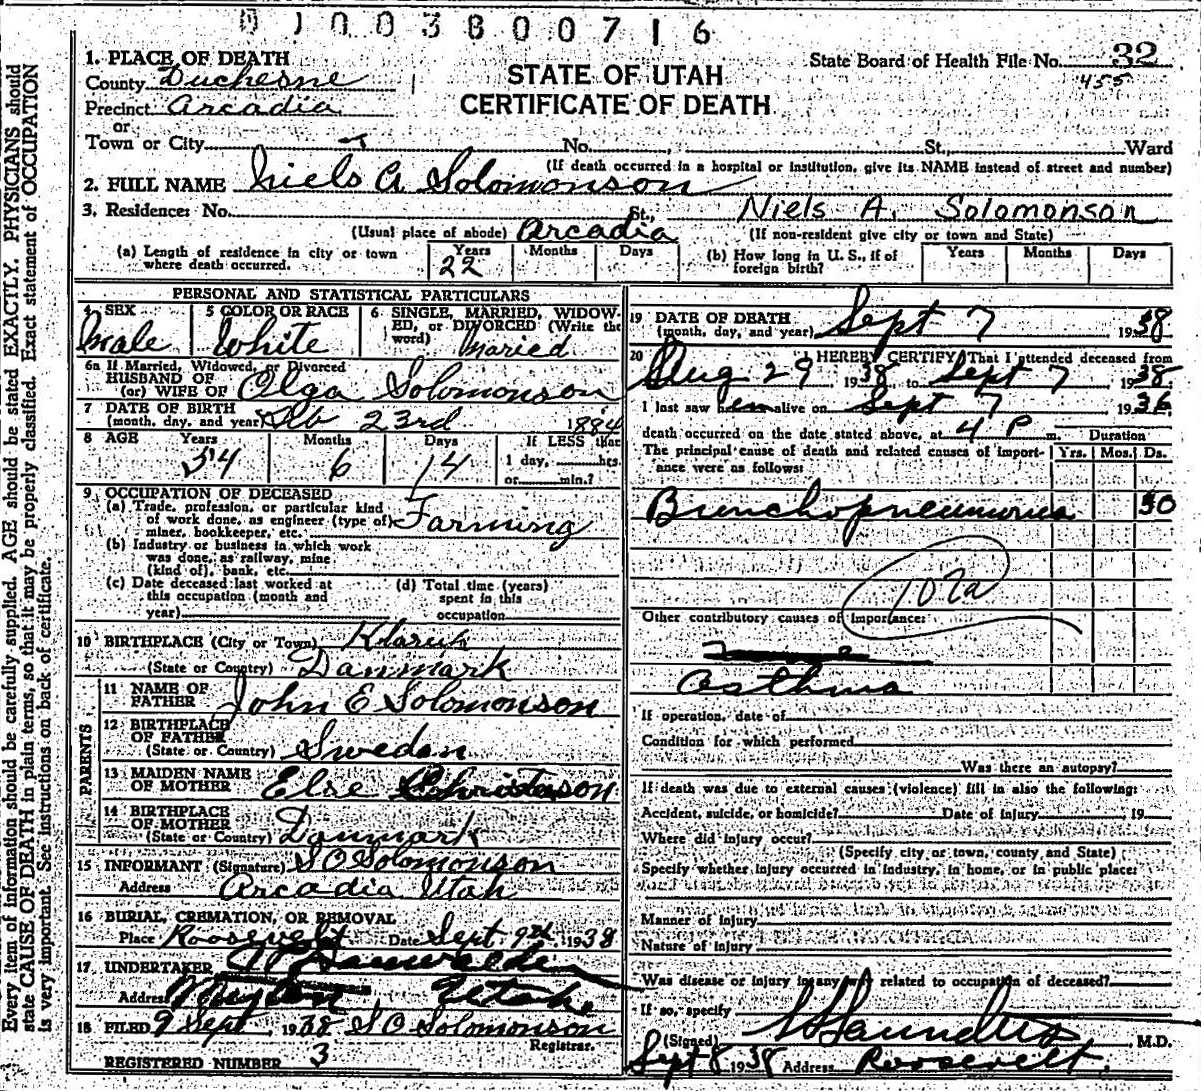 01003800716
1. PLACE OF DEATH
State Board of Health File No. 32
County Duchesne
STATE OF UTAH
455
Precinct Arcadia
CERTIFICATE OF DEATH
or
Town or City No. St., Ward
(If death occurred in a hospital or institution, give its NAME instead of street and number)
2. FULL NAME Niels A Solomonson
3. Residence: No. St., Niels A. Solomonson
(Usual place of abode) Arcadia (If non-resident give city or town and State)
(a) Length of residence in city or town where death occurred. Years 22 Months Days
(b) How long in U. S., if of foreign birth? Years Months Days
PERSONAL AND STATISTICAL PARTICULARS
4 SEX Male
5 COLOR OR RACE White
6 SINGLE, MARRIED, WIDOWED, or DIVORCED (Write the word) Maried
6a If Married, Widowed, or Divorced
HUSBAND OF
(or) WIFE OF Olga Solomonson
7 DATE OF BIRTH
(month, day, and year) Feb 23rd 1884
8 AGE Years 54 Months 6 Days 14 If LESS than
1 day, hrs.
or min.?
9 OCCUPATION OF DECEASED
(a) Trade, profession, or particular kind
of work done, as engineer (type of) Farming
miner, bookkeeper, etc.
(b) Industry or business in which work
was done, as railway, mine
(kind of), bank, etc.
(c) Date deceased last worked at
this occupation (month and
year)
(d) Total time (years)
spent in this
occupation
10 BIRTHPLACE (City or Town)
(State or Country) Danmark
PARENTS
11 NAME OF
FATHER John E Solomonson
12 BIRTHPLACE
OF FATHER
(State or Country) Sweden
13 MAIDEN NAME
OF MOTHER Else Christenson
14 BIRTHPLACE
OF MOTHER
(State or Country) Danmark
15 INFORMANT (Signature) S O Solomonson
Address Arcadia Utah
16 BURIAL, CREMATION, OR REMOVAL
Place Roosevelt Date Sept. 9th 1938
17 UNDERTAKER
Address Myton, Utah
18 FILED 9 Sept 1938 S O Solomonson
Registrar.
REGISTERED NUMBER 3
19 DATE OF DEATH
(month, day, and year) Sept 7 1938
20 I HEREBY CERTIFY, That I attended deceased from
Aug 29 1938 to Sept 7, 1938
I last saw h em alive on Sept 7 1936
death occurred on the date stated above, at 4 P m.
Duration
The principal cause of death and related causes of importance were as follows:
Yrs. Mos. Ds.
Bronchopneumonia 10
107a
Other contributory causes of importance:
Asthma
If operation, date of
Condition for which performed
Was there an autopsy?
If death was due to external causes (violence) fill in also the following:
Accident, suicide, or homicide? Date of injury 19
Where did injury occur?
(Specify city or town, county and State)
Specify whether injury occurred in industry, in home, or in public place:
Manner of injury
Nature of injury
Was disease or injury in any way related to occupation of deceased?
If so, specify
(Signed) Saunders M.D.
Sept 8 1938 Address Roosevelt.
Every item of information should be carefully supplied. AGE should be stated EXACTLY. PHYSICIANS should
state CAUSE OF DEATH in plain terms, so that it may be properly classified. Exact statement of OCCUPATION
is very important. See instructions on back of certificate.